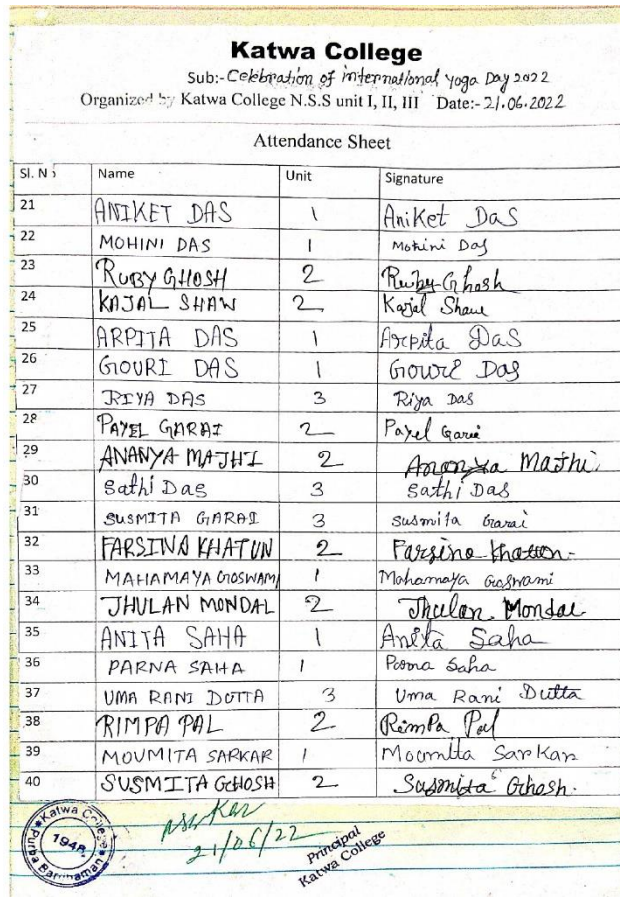 Katwa College
Sub:- Celebration of international Yoga Day 2022
Organized by Katwa College N.S.S unit I, II, III Date:- 21.06.2022
Attendance Sheet
Sl. No Name Unit Signature
21 ANIKET DAS 1 Aniket Das
22 MOHINI DAS 1 Mohini Das
23 RUBY GHOSH 2 Ruby Ghosh
24 KAJAL SHAW 2 Kajal Shaw
25 ARPITA DAS 1 Arpita Das
26 GOURI DAS 1 Gouri Das
27 RIYA DAS 3 Riya Das
28 PAYEL GARAI 2 Payel Garai
29 ANANYA MAJHI 2 Ananya Majhi
30 Sathi Das 3 Sathi Das
31 SUSMITA GARAI 3 Susmita Garai
32 FARSINA KHATUN 2 Farsina Khatun
33 MAHAMAYA GOSWAMI 1 Mahamaya Goswami
34 JHULAN MONDAL 2 Jhulan Mondal
35 ANITA SAHA 1 Anita Saha
36 PARNA SAHA 1 Parna Saha
37 UMA RANI DUTTA 3 Uma Rani Dutta
38 RIMPA PAL 2 Rimpa Pal
39 MOUMITA SARKAR 1 Moumita Sarkar
40 SUSMITA GHOSH 2 Susmita Ghosh.
Katwa College
1948
Purba Bardhaman
21/06/22
Principal
Katwa College